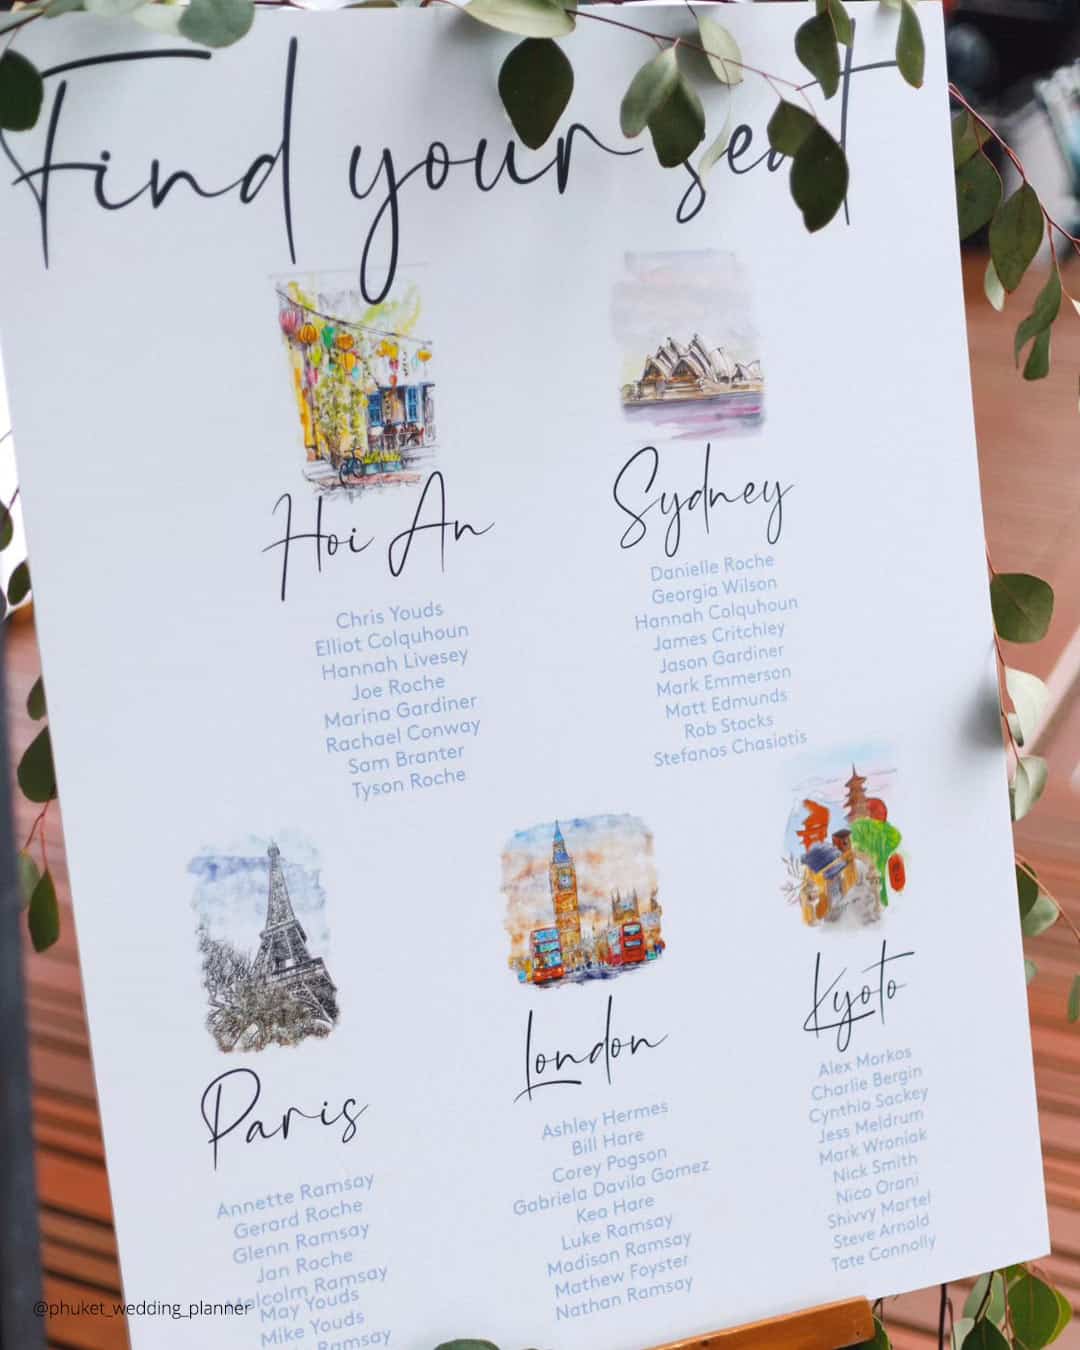 Find your seat
Hoi An
Chris Youds
Elliot Colquhoun
Hannah Livesey
Joe Roche
Marina Gardiner
Rachael Conway
Sam Branter
Tyson Roche
Sydney
Danielle Roche
Georgia Wilson
Hannah Colquhoun
James Critchley
Jason Gardiner
Mark Emmerson
Matt Edmunds
Rob Stocks
Stefanos Chasiotis
Paris
Annette Ramsay
Gerard Roche
Glenn Ramsay
Jan Roche
Malcolm Ramsay
May Youds
Mike Youds
Ramsay
London
Ashley Hermes
Bill Hare
Corey Pogson
Gabriela Davila Gomez
Kea Hare
Luke Ramsay
Madison Ramsay
Mathew Foyster
Nathan Ramsay
Kyoto
Alex Morkos
Charlie Bergin
Cynthia Sackey
Jess Meldrum
Mark Wroniak
Nick Smith
Nico Orani
Shivvy Martel
Steve Arnold
Tate Connolly
@phuket_wedding_planner